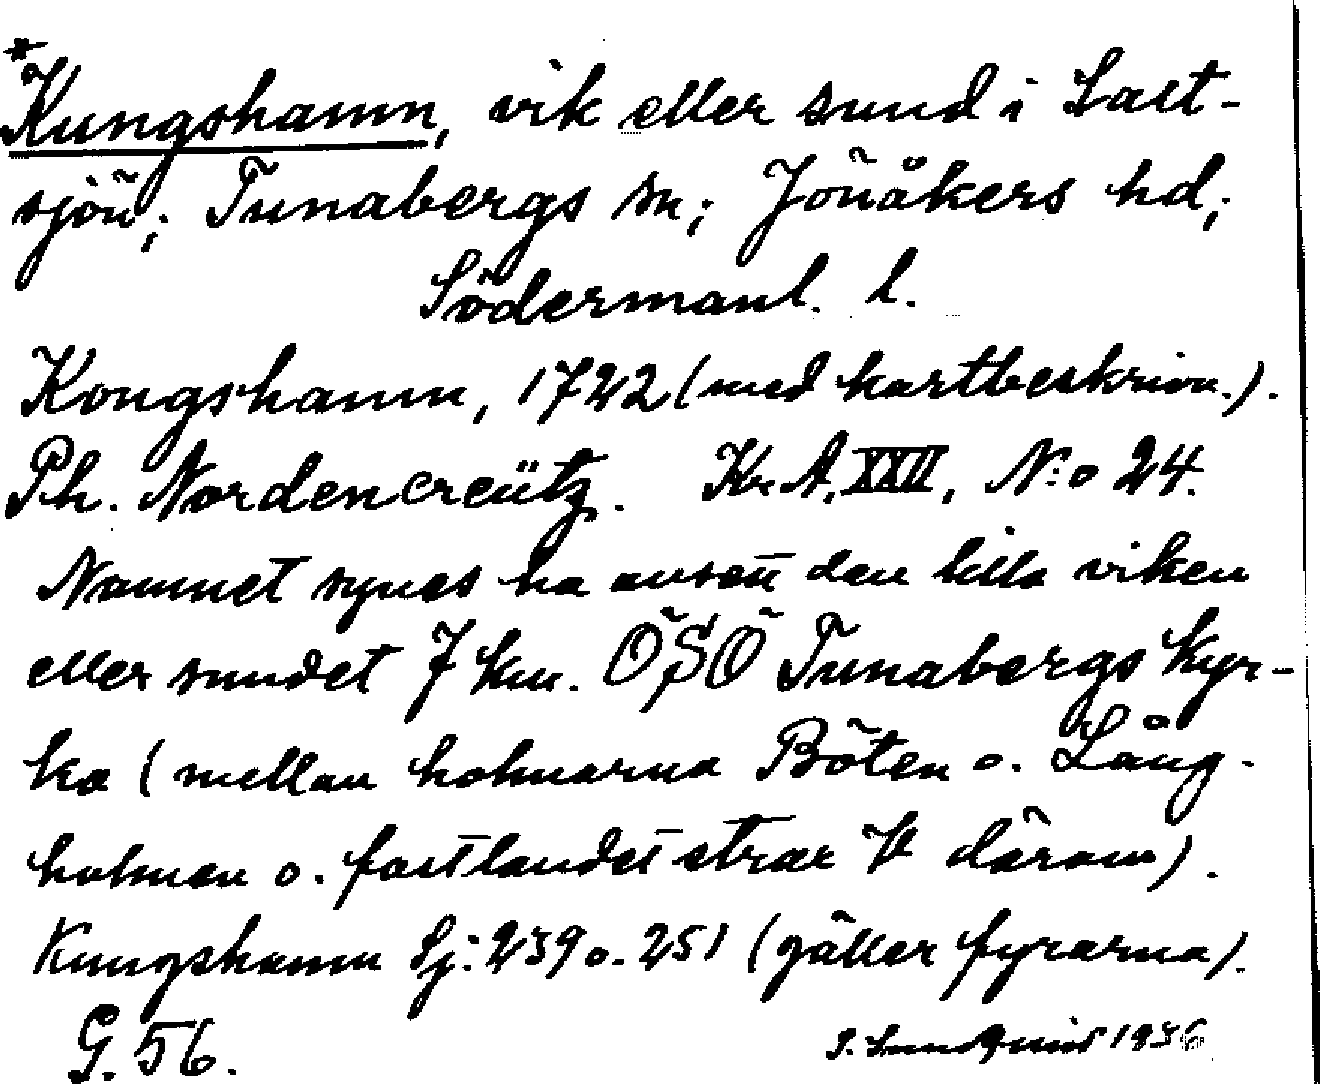 *Kungshamn, vik eller sund i Salt-
sjön; Tunabergs sn; Jönåkers hd;
Södermanl. l.
Kongshamn, 1722 (med kartbeskrivn.).
Ph. Nordencreütz. Kr.A. XXII, N:o 24.
Namnet synes ha avsett den lilla viken
eller sundet 7 km. ÖSÖ Tunabergs kyr-
ka (mellan holmarna Böten o. Lång-
holmen o. fastlandet strax V därom).
Kungshamn Sj: 239 o. 251 (gäller fyrarna).
G. 56.
S. Lundquist 1936